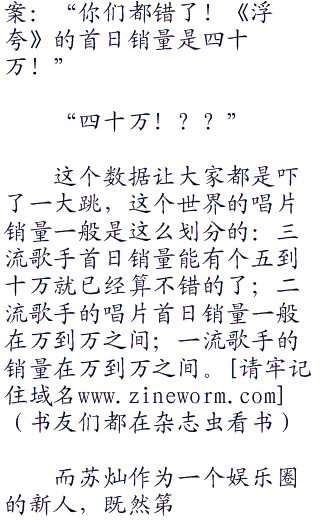 案：“你们都错了！《浮
夸》的首日销量是四十
万！”
“四十万！？？”
这个数据让大家都是吓
了一大跳，这个世界的唱片
销量一般是这么划分的：三
流歌手首日销量能有个五到
十万就已经算不错的了；二
流歌手的唱片首日销量一般
在万到万之间；一流歌手的
销量在万到万之间。[请牢记
住域名www.zineworm.com]
（书友们都在杂志虫看书）
而苏灿作为一个娱乐圈
的新人，既然第